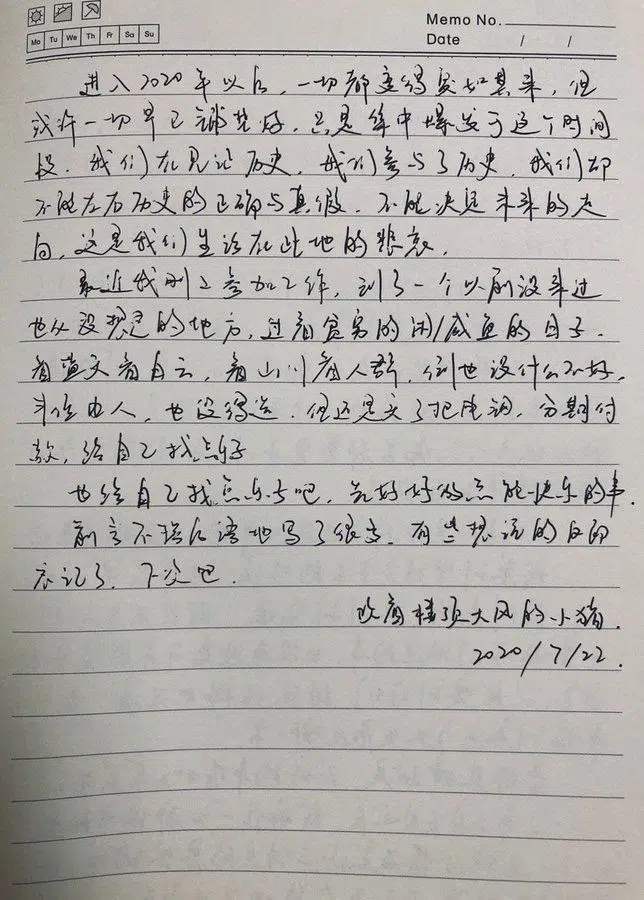 Memo No.
Date / /
Mo Tu We Th Fr Sa Su
进入2020年以后，一切都变得突如其来，但
或许一切早已铺垫好，只是集中爆发于这个时间
段。我们在见证历史，我们参与了历史，我们却
不能左右历史的正确与真假，不能决定未来的走
向，这是我们生活在此地的悲哀。
最近我刚刚参加工作，到了一个以前没来过
也从没想过的地方，过着贫穷的闲/咸鱼的日子。
看蓝天看白云，看山川看人群，倒也没什么不好，
半位由人，也没得选。但还是买了把电调，分期付
款，给自己找点乐子
也给自己找点乐子吧，先好好做点能快乐的事。
前言不搭后语地写了很多，有些想说的反而
忘记了，下次吧。
吹着楼顶大风的小猪。
2020/7/22.